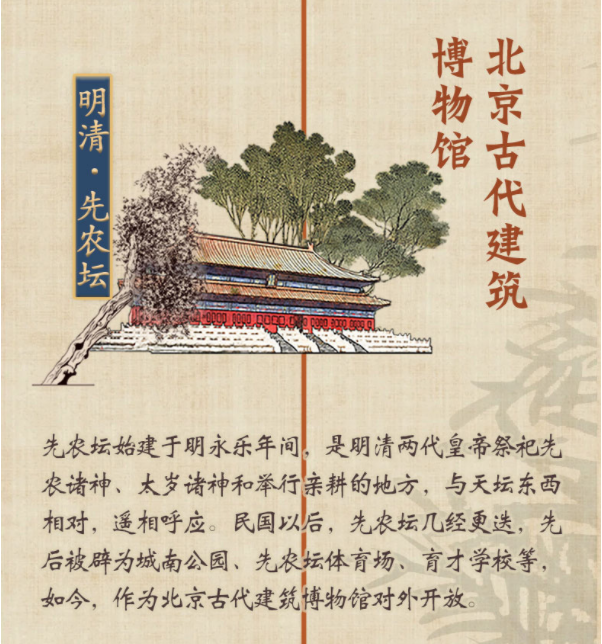 北京古代建筑
博物馆
明清·先农坛
先农坛始建于明永乐年间，是明清两代皇帝祭祀先
农诸神、太岁诸神和举行亲耕的地方，与天坛东西
相对，遥相呼应。民国以后，先农坛几经更迭，先
后被辟为城南公园、先农坛体育场、育才学校等，
如今，作为北京古代建筑博物馆对外开放。